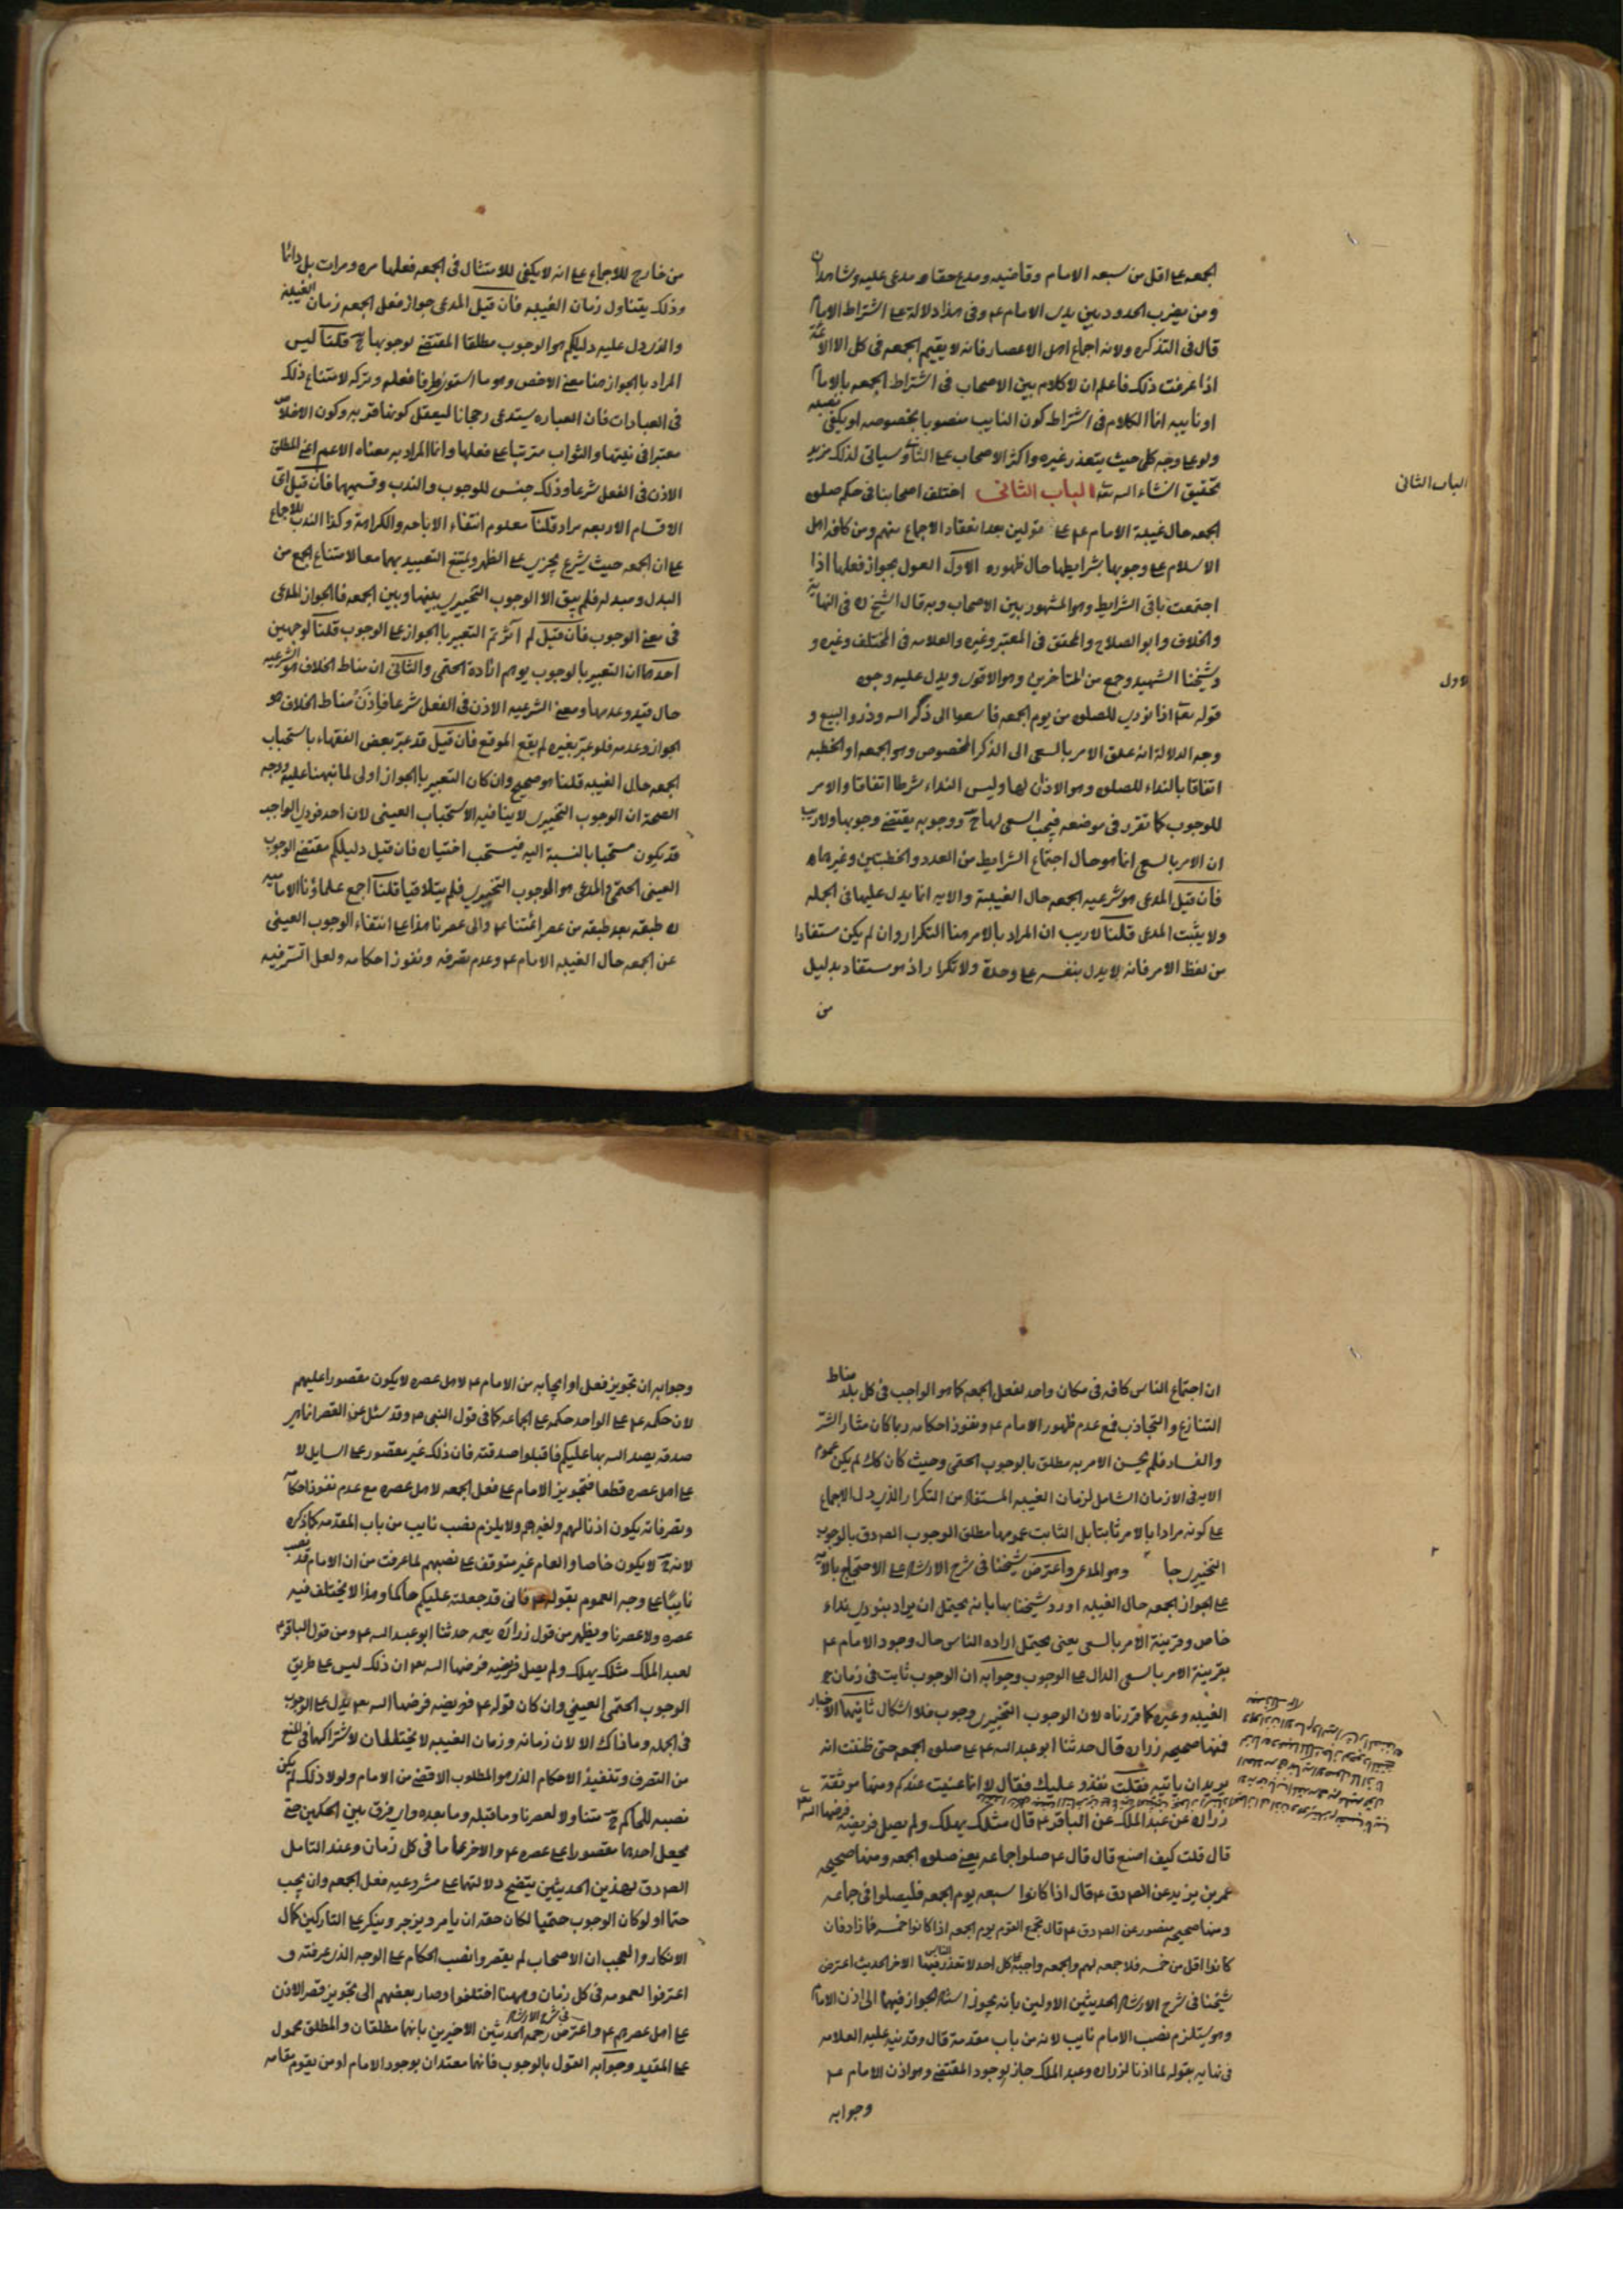 الجمعه على اقل من سبعه الامام وقاضيه ومدع حقا و مدعى عليه وشاهدان
ومن يضرب الحدود بين يدى الامام ع وفى هذا دلالة على اشتراط الامام
قال فى التذكره ولانه اجماع اهل الاعصار فانه لا يقيم الجمعه فى كل الا الائمة
اذا عرفت ذلك فاعلم ان لا كلام بين الاصحاب فى اشتراط الجمعه بالامام
او نايبه انما الكلام فى اشتراط كون النايب منصوبا بخصوصه او يكفى نصبه
ولو على وجه كلى حيث يتعذر غيره واكثر الاصحاب على الثانى وسياتى لذلك مزيد
تحقيق انشاء الله تعه الباب الثانى اختلف اصحابنا فى حكم صلوة
الباب الثانى
الجمعه حال غيبة الامام ع على قولين بعد انعقاد الاجماع منهم ومن كافه اهل
الاسلام على وجوبها بشرايطها حال ظهوره الاول القول بجواز فعلها اذا
اجتمعت باقى الشرايط وهو المشهور بين الاصحاب وبه قال الشيخ ره فى النهاية
والخلاف وابو الصلاح والمحقق فى المعتبر وغيره والعلامه فى المختلف وغيره و
وشيخنا الشهيد وجمع من المتاخرين وهو الاقوى ويدل عليه وجوه
الاول
قوله تعا اذا نودى للصلوة من يوم الجمعه فاسعوا الى ذكر الله وذروا البيع و
وجه الدلالة انه علق الامر بالسعى الى الذكر المخصوص وهو الجمعه او الخطبه
اتفاقا بالنداء للصلوة وهو الاذان لها وليس النداء شرطا اتفاقا والامر
للوجوب كما تقرر فى موضعه فيجب السعى لها ح ووجوبه يقتضى وجوبها ولا ريب
ان الامر بالسعى انما هو حال اجتماع الشرايط من العدد والخطبتين وغيرهما
فان قيل المدعى هو شرعيه الجمعه حال الغيبة والايه انما يدل عليها فى الجمله
ولا يثبت المدعى قلنا لا ريب ان المراد بالامر هنا التكرار وان لم يكن مستفادا
من لفظ الامر فانه لا يدل بنفسه على وحدة ولا تكرار اذ هو مستفاد بدليل
من
من خارج للاجماع على انه لا يكفى للامتثال فى الجمعه فعلها مره ومرات بل دائما
وذلك يتناول زمان الغيبه فان قيل المدعى جواز فعل الجمعه زمان الغيبة
والذى دل عليه دليلكم هو الوجوب مطلقا المقتضى لوجوبها ح قلنا ليس
المراد بالجواز هنا معنى الاخص وهو ما استوى طرفا فعله وتركه لامتناع ذلك
فى العبادات فان العباره يستدعى رجحانا ليعقل كونها قربه وكون الاخلاص
معتبرا فى نيتها والثواب مترتبا على فعلها وانما المراد به معناه الاعم اعنى المطلق
الاذن فى الفعل شرعا وذلك جنس للوجوب والندب وقسيمهما فان قيل اى
الاقسام الاربعه مراد قلنا معلوم انتفاء الاباحه والكراهة وكذا الندب للاجماع
على ان الجمعه حيث يشرع يجزى على الظهر ويمتنع التعبد بهما معا لامتناع الجمع من
البدل ومبدله فلم يبق الا الوجوب التخييرى بينها وبين الجمعه فالجواز المدعى
فى معنى الوجوب فان قيل لم آثرتم التعبير بالجواز على الوجوب قلنا لوجهين
احدهما ان التعبير بالوجوب يوهم ارادة الحتمى والثانى ان مناط الخلاف هو الشرعيه
حال وعدمها ومعنى الشرعيه الاذن فى الفعل شرعا فاِذَنْ مناط الخلاف هو
الجواز وعدمه فلو عبّر بغيره لم يقع الموقع فان قيل قد عبّر بعض الفقهاء باستحباب
الجمعه حال الغيبه قلنا هو صحيح وان كان التعبير بالجواز اولى لما نبهنا عليه ووجه
الصحة ان الوجوب التخييرى لا ينافيه الاستحباب العينى لان احد فردى الواجب
قد يكون مستحبا بالنسبة اليه فيستحب اختياره فان قيل دليلكم مقتضى الوجوب
العينى الحتمى والمدعى هو الوجوب التخييرى فلم يتلاقيا قلنا اجمع علماؤنا الاماميه
ره طبقه بعد طبقه من عصر ائمتنا ع والى عصرنا هذا على انتفاء الوجوب العينى
عن الجمعه حال الغيبه الامام ع وعدم تصرفه ونفوذ احكامه ولعل السّر فيه
ان اجتماع الناس كافه فى مكان واحد لفعل الجمعه كما هو الواجب فى كل بلد مناط
التنازع والتجاذب فمع عدم ظهور الامام ع ونفوذ احكامه ربما كان مثار الشّر
والفساد فلم يحسن الامر به مطلق بالوجوب الحتمى وحيث كان كك لم يكن عموم
الايه فى الازمان الشامل لزمان الغيبه المستفاد من التكرار الذى دل الاجماع
على كونه مرادا بالامر ثابتا بل الثابت عمومها مطلق الوجوب الصادق بالوجوب
التخييرى وهو المدعى واعترض شيخنا فى شرح الارشاد على الاحتجاج بالايه
على الجواز الجمعه حال الغيبه اورد شيخنا بها بانه يحتمل ان يراد بنودى نداء
خاص وقرينة الامر بالسعى يعنى يحتمل اراده الناس حال وجود الامام ع
بقرينة الامر بالسعى الدال على الوجوب وجوابه ان الوجوب ثابت فى زمان
الغيبه وغيره كما قررناه لان الوجوب التخييرى وجوب فلا اشكال ثانيها الاخبار
فمنها صحيحه زراره قال حدثنا ابو عبد الله ع على صلوة الجمعه حتى ظننت انه
يريد ان ياتيه فقلت نغدو عليك فقال لا انما عنيت عندكم ومنها موثقة
زراره عن عبد الملك عن الباقر ع قال مثلك يهلك ولم يصل فريضة فرضها الله
قال قلت كيف اصنع قال قال ع صلوا جماعه يعنى صلوة الجمعه ومنها صحيحه
عمر بن يزيد عن الصادق ع قال اذا كانوا سبعه يوم الجمعه فليصلوا فى جماعه
ومنها صحيحه منصور عن الصادق ع قال تجمع القوم يوم الجمعه اذا كانوا خمسه فما زاد فان
كانوا اقل من خمسه فلا جمعه لهم والجمعه واجبة على كل احد لا تعذر الناس فيها الاخر الحديث اعترض
شيخنا فى شرح الارشاد الحديثين الاولين بانه يجوز استناد الجواز فيهما الى اذن الامام
وهو يستلزم نصب الامام نايب لانه من باب مقدمة قال وقد نبه عليه العلامه
فى نهايه بقوله لما اذنا لزراره وعبد الملك جاز لوجود المقتضى وهو اذن الامام ع
وجوابه
وجوابه ان تجويز فعل او ايجابه من الامام ع لاهل عصره لا يكون مقصورا عليهم
لان حكمه ع على الواحد حكمه على الجماعه كما فى قول النبى ص وقد سئل عن القصر انما هى
صدقه تصدق الله بها عليكم فاقبلوا صدقته فان ذلك غير مقصور على السايل لا
على اهل عصره قطعا فتجويز الامام على فعل الجمعه لاهل عصره مع عدم نفوذ احكامه
وتصرفاته يكون اذنا لهم ولغيرهم ولا يلزم نصب نايب من باب المقدمه كما ذكره
لانه ح لا يكون خاصا والعام غير متوقف على نصبهم لما عرفت من ان الامام قد نصب
نايبًا على وجه العموم بقوله ع فانى قد جعلته عليكم حاكما وهذا لا يختلف فيه
عصره ولا عصرنا ويظهر من قول زراره حدثنا ابو عبد الله ع ومن قول الباقر ع
لعبد الملك مثلك يهلك ولم يصل فريضه فرضها الله ان ذلك ليس على طريق
الوجوب الحتمى العينى وان كان قوله ع فريضه فرضها الله يدل على الوجوب
فى الجمله وما ذاك الا لان زمانه وزمان الغيبه لا يختلفان لاشتراكهما فى المنع
من التصرف وتنفيذ الاحكام الذى هو المطلوب الاقصى من الامام ولولا ذلك لم يكن
نصبه للحاكم ح متناولا لعصرنا وما قبله وما بعده واى فرق بين الحكمين حتى
يجعل احدهما مقصورا على عصره ع والاخر عاما فى كل زمان وعند التامل
الصادق لهذين الحديثين يتضح دلالتهما على مشروعيه فعل الجمعه وان يجب
حتما اذ لو كان الوجوب حتميا لكان حقه ان يامر ويزجر وينكر على التاركين كمال
الانكار والعجب ان الاصحاب لم يقصروا نصب الحكام على الوجه الذى عرفته و
اعترفوا لعمومه فى كل زمان وههنا اختلفوا وصار بعضهم الى تجويز قصر الاذن
على اهل عصرهم ع واعترض رحمه فى شرح الارشاد الحديثين الاخيرين بانهما مطلقان والمطلق محمول
على المقيد وجوابه القول بالوجوب فانهما مقيدان بوجود الامام او من يقوم مقامه